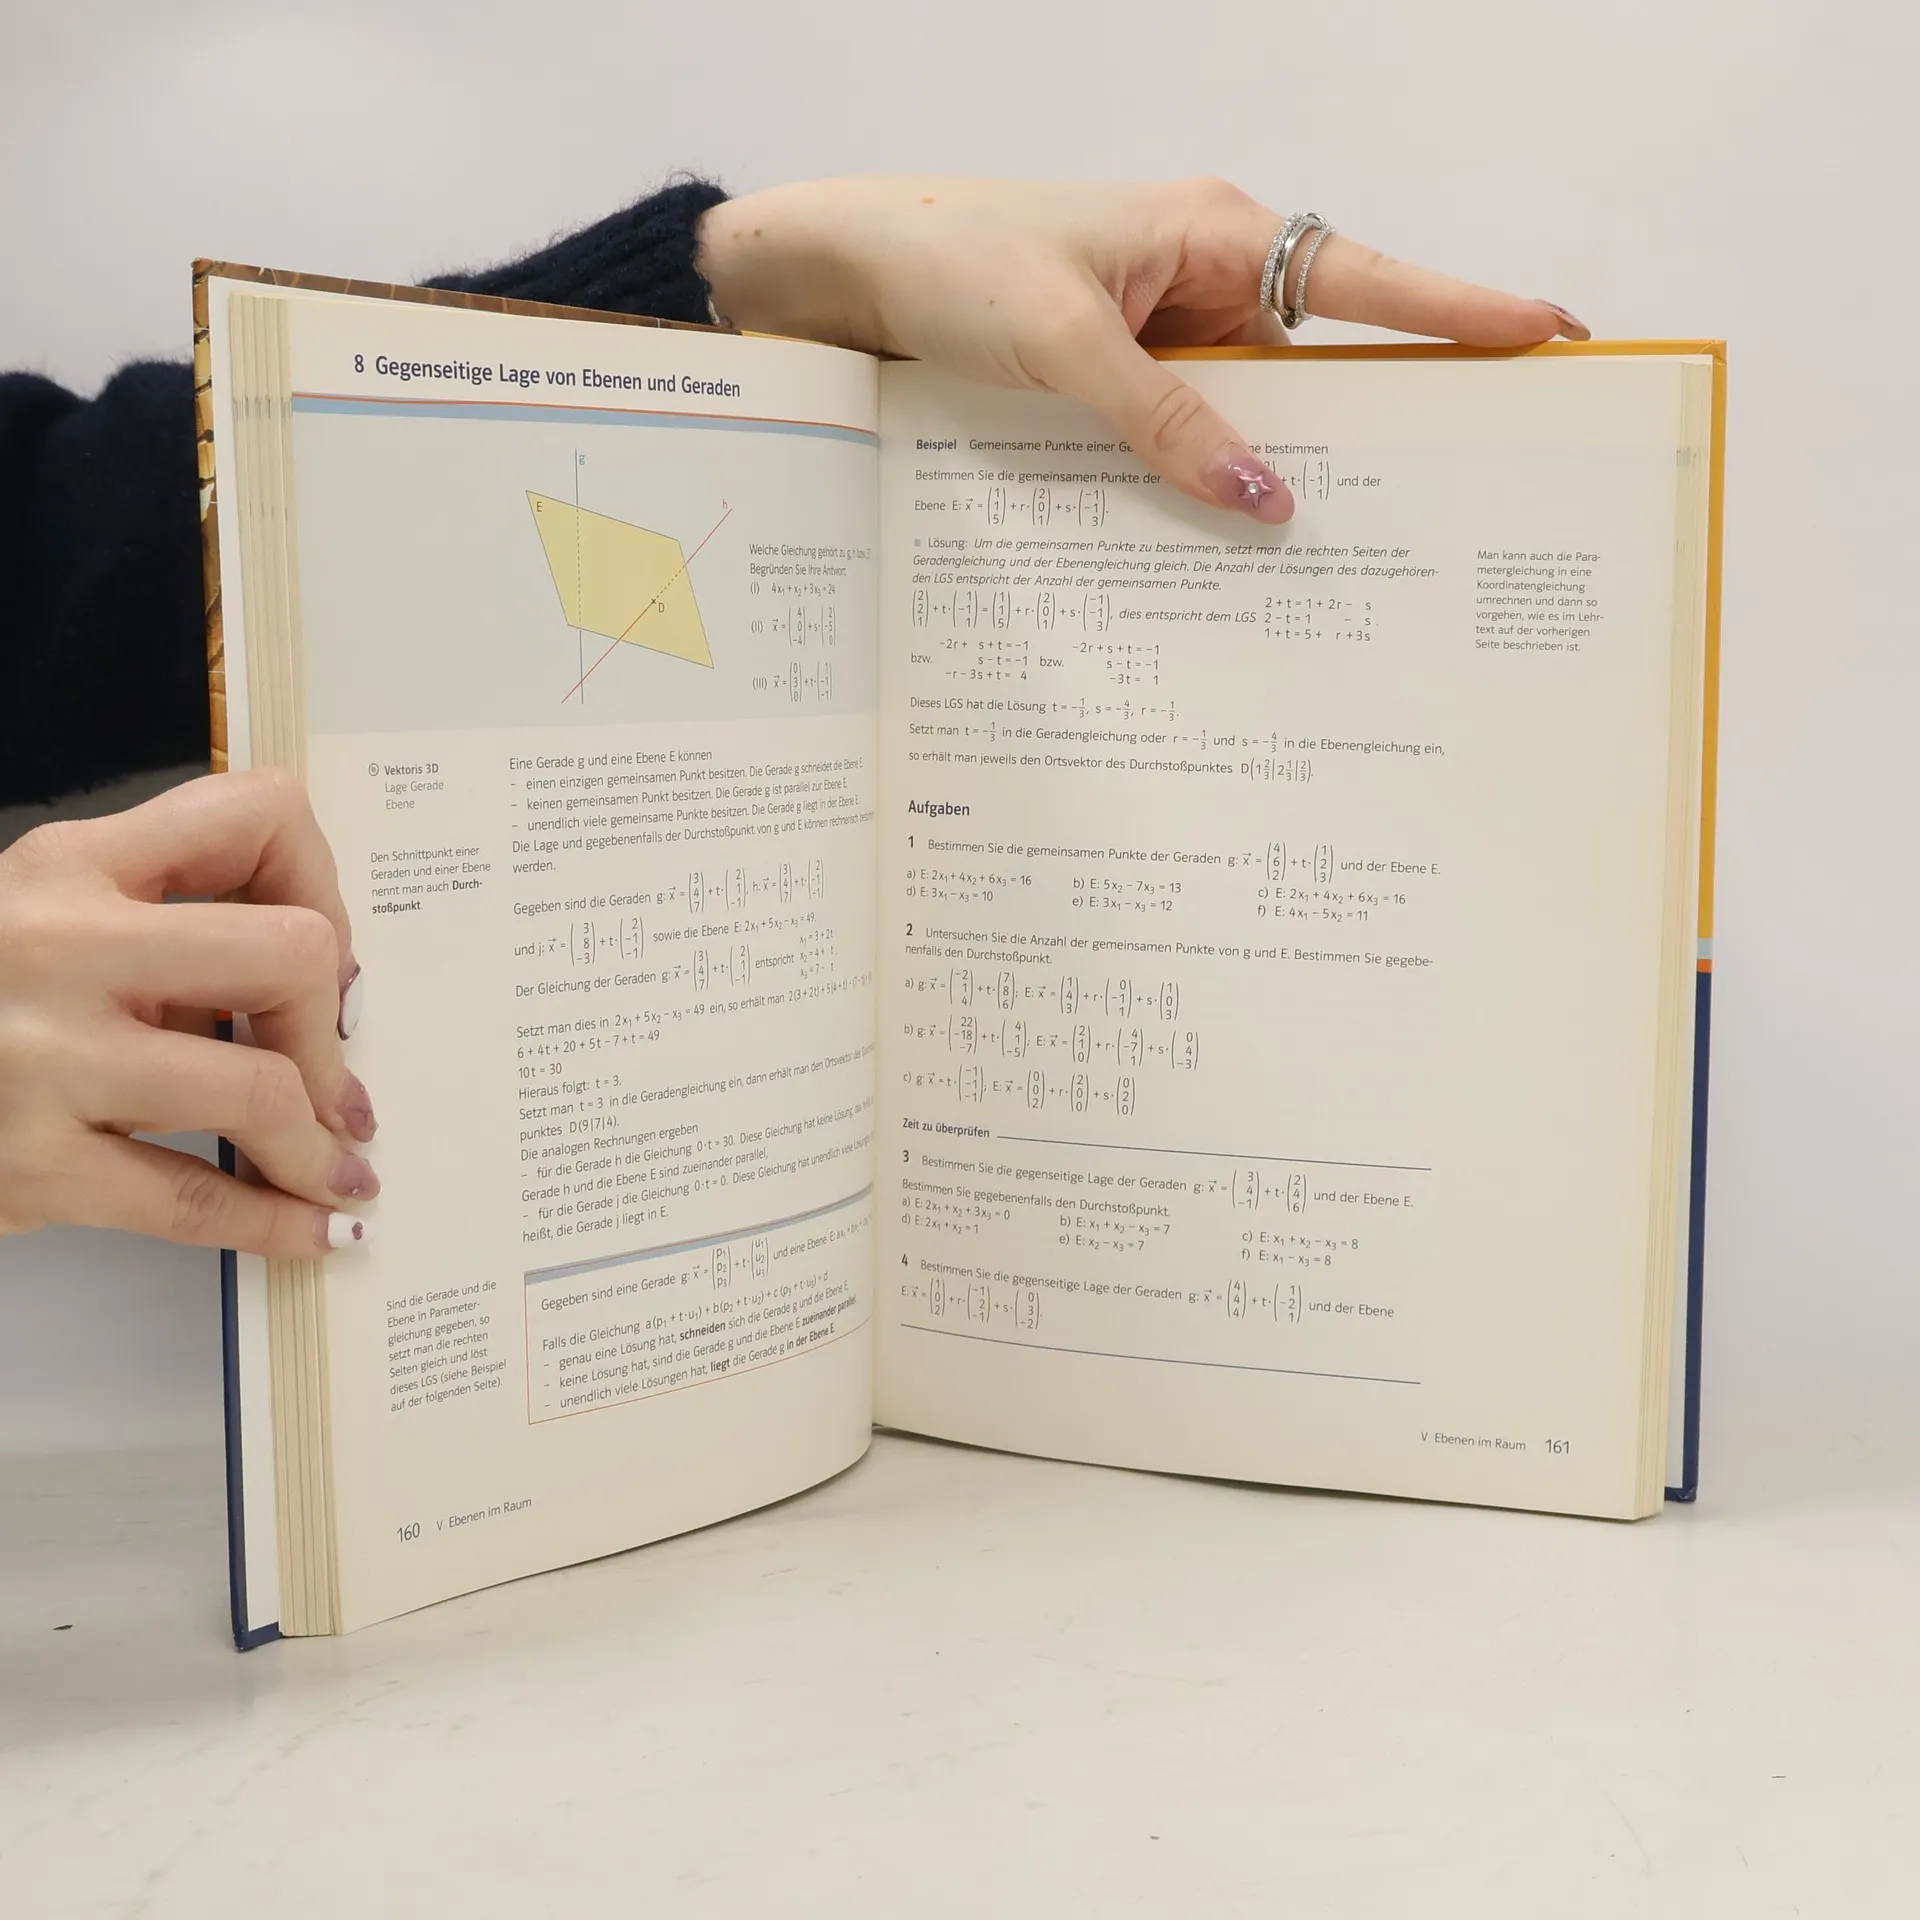 8 Gegenseitige Lage von Ebenen und Geraden
g
E
h
D
Welche Gleichung gehört zu g, h bzw. E?
Begründen Sie Ihre Antwort.
(I) 4x₁ + x₂ + 3x₃ = 24
(II) x⃗ = (4 | 0 | -4) + s · (2 | -5 | 0)
(III) x⃗ = (0 | 3 | 0) + t · (1 | -1 | -1)
Vektoris 3D
Lage Gerade
Ebene
Den Schnittpunkt einer
Geraden und einer Ebene
nennt man auch Durch-
stoßpunkt.
Eine Gerade g und eine Ebene E können
– einen einzigen gemeinsamen Punkt besitzen. Die Gerade g schneidet die Ebene E.
– keinen gemeinsamen Punkt besitzen. Die Gerade g ist parallel zur Ebene E.
– unendlich viele gemeinsame Punkte besitzen. Die Gerade g liegt in der Ebene E.
Die Lage und gegebenenfalls der Durchstoßpunkt von g und E können rechnerisch
werden.
Gegeben sind die Geraden g: x⃗ = (3 | 4 | 7) + t · (2 | 1 | -1), h: x⃗ = (3 | 4 | 7) + t · (2 | -1 | -1)
und j: x⃗ = (3 | 8 | -3) + t · (2 | -1 | -1) sowie die Ebene E: 2x₁ + 5x₂ – x₃ = 49.
Der Gleichung der Geraden g: x⃗ = (3 | 4 | 7) + t · (2 | 1 | -1) entspricht x₁ = 3 + 2t
x₂ = 4 + t
x₃ = 7 – t
Setzt man dies in 2x₁ + 5x₂ – x₃ = 49 ein, so erhält man 2(3 + 2t) + 5(4 + t) – (7 – t)
6 + 4t + 20 + 5t – 7 + t = 49
10t = 30
Hieraus folgt: t = 3.
Setzt man t = 3 in die Geradengleichung ein, dann erhält man den Ortsvektor des
punktes D(9|7|4).
Die analogen Rechnungen ergeben
– für die Gerade h die Gleichung 0·t = 30. Diese Gleichung hat keine Lösung, das heißt,
Gerade h und die Ebene E sind zueinander parallel,
– für die Gerade j die Gleichung 0·t = 0. Diese Gleichung hat unendlich viele
heißt, die Gerade j liegt in E.
Sind die Gerade und die
Ebene in Parameter-
gleichung gegeben, so
setzt man die rechten
Seiten gleich und löst
dieses LGS (siehe Beispiel
auf der folgenden Seite).
Gegeben sind eine Gerade g: x⃗ = (p₁ | p₂ | p₃) + t · (u₁ | u₂ | u₃) und eine Ebene E:
Falls die Gleichung a(p₁ + t·u₁) + b(p₂ + t·u₂) + c(p₃ + t·u₃) = d
– genau eine Lösung hat, schneiden sich die Gerade g und die Ebene E,
– keine Lösung hat, sind die Gerade g und die Ebene E zueinander parallel,
– unendlich viele Lösungen hat, liegt die Gerade g in der Ebene E.
160 V Ebenen im Raum
Beispiel Gemeinsame Punkte einer bestimmen
Bestimmen Sie die gemeinsamen Punkte der + t · (1 | -1 | 1) und der
Ebene E: x⃗ = (1 | 1 | 5) + r · (2 | 0 | 1) + s · (-1 | -1 | 3).
Lösung: Um die gemeinsamen Punkte zu bestimmen, setzt man die rechten Seiten der
Geradengleichung und der Ebenengleichung gleich. Die Anzahl der Lösungen des dazugehören-
den LGS entspricht der Anzahl der gemeinsamen Punkte.
(2 | 2 | 1) + t · (1 | -1 | 1) = (1 | 1 | 5) + r · (2 | 0 | 1) + s · (-1 | -1 | 3), dies entspricht dem LGS
2 + t = 1 + 2r – s
2 – t = 1 – s .
1 + t = 5 + r + 3s
bzw.
-2r + s + t = -1
s – t = -1
-r – 3s + t = 4
bzw.
-2r + s + t = -1
s – t = -1
-3t = 1
Dieses LGS hat die Lösung t = -1/3, s = -4/3, r = -1/3.
Setzt man t = -1/3 in die Geradengleichung oder r = -1/3 und s = -4/3 in die Ebenengleichung ein,
so erhält man jeweils den Ortsvektor des Durchstoßpunktes D(1 2/3 | 2 1/3 | 2/3).
Man kann auch die Para-
metergleichung in eine
Koordinatengleichung
umrechnen und dann so
vorgehen, wie es im Lehr-
text auf der vorherigen
Seite beschrieben ist.
Aufgaben
1 Bestimmen Sie die gemeinsamen Punkte der Geraden g: x⃗ = (4 | 6 | 2) + t · (1 | 2 | 3) und der Ebene E.
a) E: 2x₁ + 4x₂ + 6x₃ = 16 b) E: 5x₂ – 7x₃ = 13 c) E: 2x₁ + 4x₂ + 6x₃ = 16
d) E: 3x₁ – x₃ = 10 e) E: 3x₁ – x₃ = 12 f) E: 4x₁ – 5x₂ = 11
2 Untersuchen Sie die Anzahl der gemeinsamen Punkte von g und E. Bestimmen Sie gegebe-
nenfalls den Durchstoßpunkt.
a) g: x⃗ = (-2 | 1 | 4) + t · (7 | 8 | 6); E: x⃗ = (1 | 4 | 3) + r · (0 | -1 | 1) + s · (1 | 0 | 3)
b) g: x⃗ = (22 | -18 | -7) + t · (4 | 1 | -5); E: x⃗ = (2 | 1 | 0) + r · (4 | -7 | 1) + s · (0 | 4 | -3)
c) g: x⃗ = t · (-1 | -1 | -1); E: x⃗ = (0 | 0 | 2) + r · (2 | 0 | 0) + s · (0 | 2 | 0)
Zeit zu überprüfen
3 Bestimmen Sie die gegenseitige Lage der Geraden g: x⃗ = (3 | 4 | -1) + t · (2 | 4 | 6) und der Ebene E.
Bestimmen Sie gegebenenfalls den Durchstoßpunkt.
a) E: 2x₁ + x₂ + 3x₃ = 0 b) E: x₁ + x₂ – x₃ = 7 c) E: x₁ + x₂ – x₃ = 8
d) E: 2x₁ + x₂ = 1 e) E: x₂ – x₃ = 7 f) E: x₁ – x₃ = 8
4 Bestimmen Sie die gegenseitige Lage der Geraden g: x⃗ = (4 | 4 | 4) + t · (1 | -2 | 1) und der Ebene
E: x⃗ = (1 | 0 | 2) + r · (-1 | 2 | -1) + s · (0 | 3 | -2).
V Ebenen im Raum 161